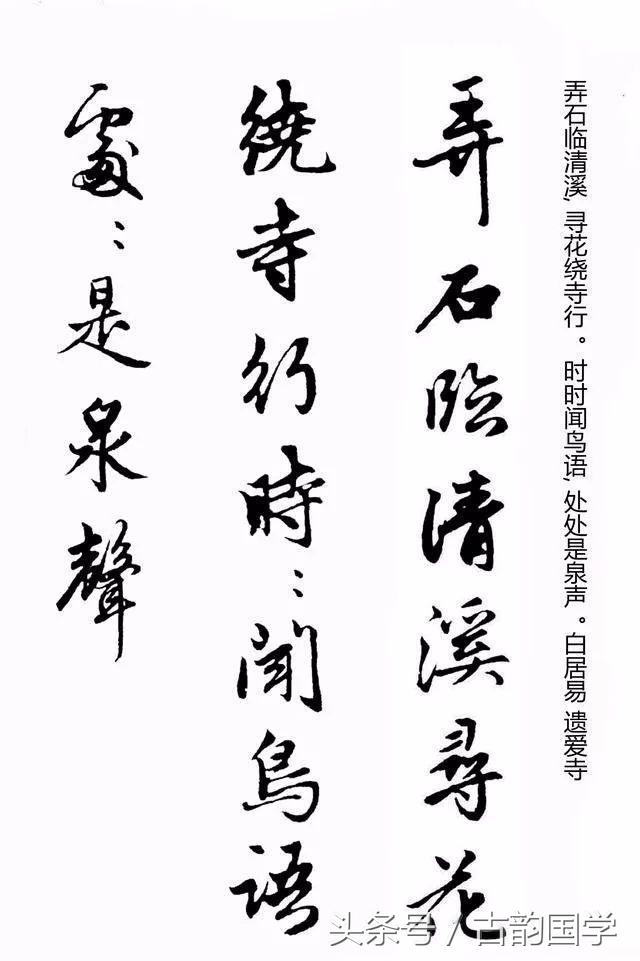 弄石临清溪,寻花绕寺行。时时闻鸟语,处处是泉声。白居易 遗爱寺
弄石臨清溪尋花
繞寺行時：聞鳥語
處：是泉聲
头条号／古韵国学